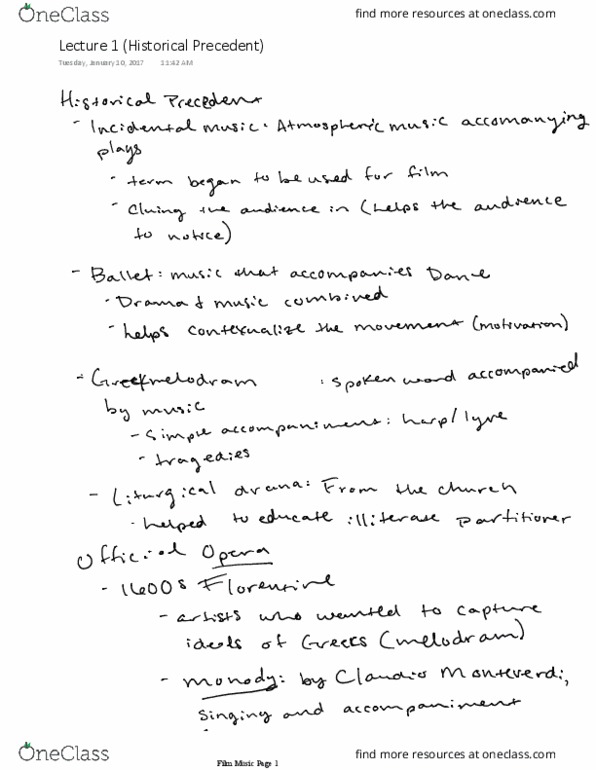 OneClass
find more resources at oneclass.com
Lecture 1 (Historical Precedent)
Tuesday, January 10, 2017 11:42 AM
Historical Precedent
- Incidental music: Atmospheric music accomanying
plays
- term began to be used for film
- Cluing the audience in (helps the audience
to notice)
- Ballet: music that accompanies Dance
- Drama & music combined
- helps contexualize the movement (motivation)
- Greek melodram : spoken word accompanied
by music
- Simple accompaniment: harp/lyre
- tragedies
- Liturgical drama: From the church
- helped to educate illiterate partitioner
Official Opera
- 1600s Florentine
- artists who wanted to capture
ideals of Greeks (melodram)
- monody: by Claudio Monteverdi,
singing and accompaniment
OneClass
Film Music Page 1
find more resources at oneclass.com